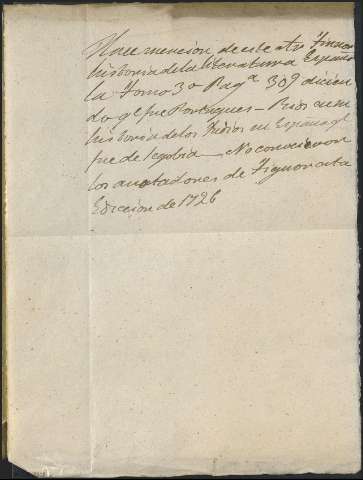 Hace mencion de este autor Ticknor
historia de la literatura Españo
la Tomo 3º Pagª 309 dicien
do qe fue Portugues — Rios en su
historia delos Judios en España qe
fue de Segobia — No conocieron
los anotadores de Ticknor esta
Ediccion de 1726